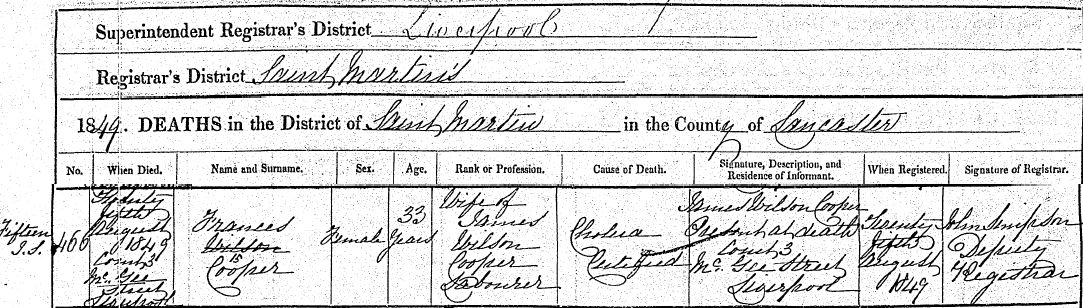 Superintendent Registrar's District Liverpool
Registrar's District Saint Martin's
1849. DEATHS in the District of Saint Martin in the County of Lancaster
No. When Died. Name and Surname. Sex. Age. Rank or Profession. Cause of Death. Signature, Description, and Residence of Informant. When Registered. Signature of Registrar.
Fifteen
J.S.
466
Twenty
fifth
August
1849
Court 3
Mc. Gee
Street
Liverpool
Frances
Wilson
15
Cooper
Female
33
Years
Wife of
James
Wilson
Cooper
Labourer
Cholera
Certified
James Wilson Cooper
Present at death
Court 3
Mc. Gee Street
Liverpool
Twenty
fifth
August
1849
John Simpson
Deputy
Registrar